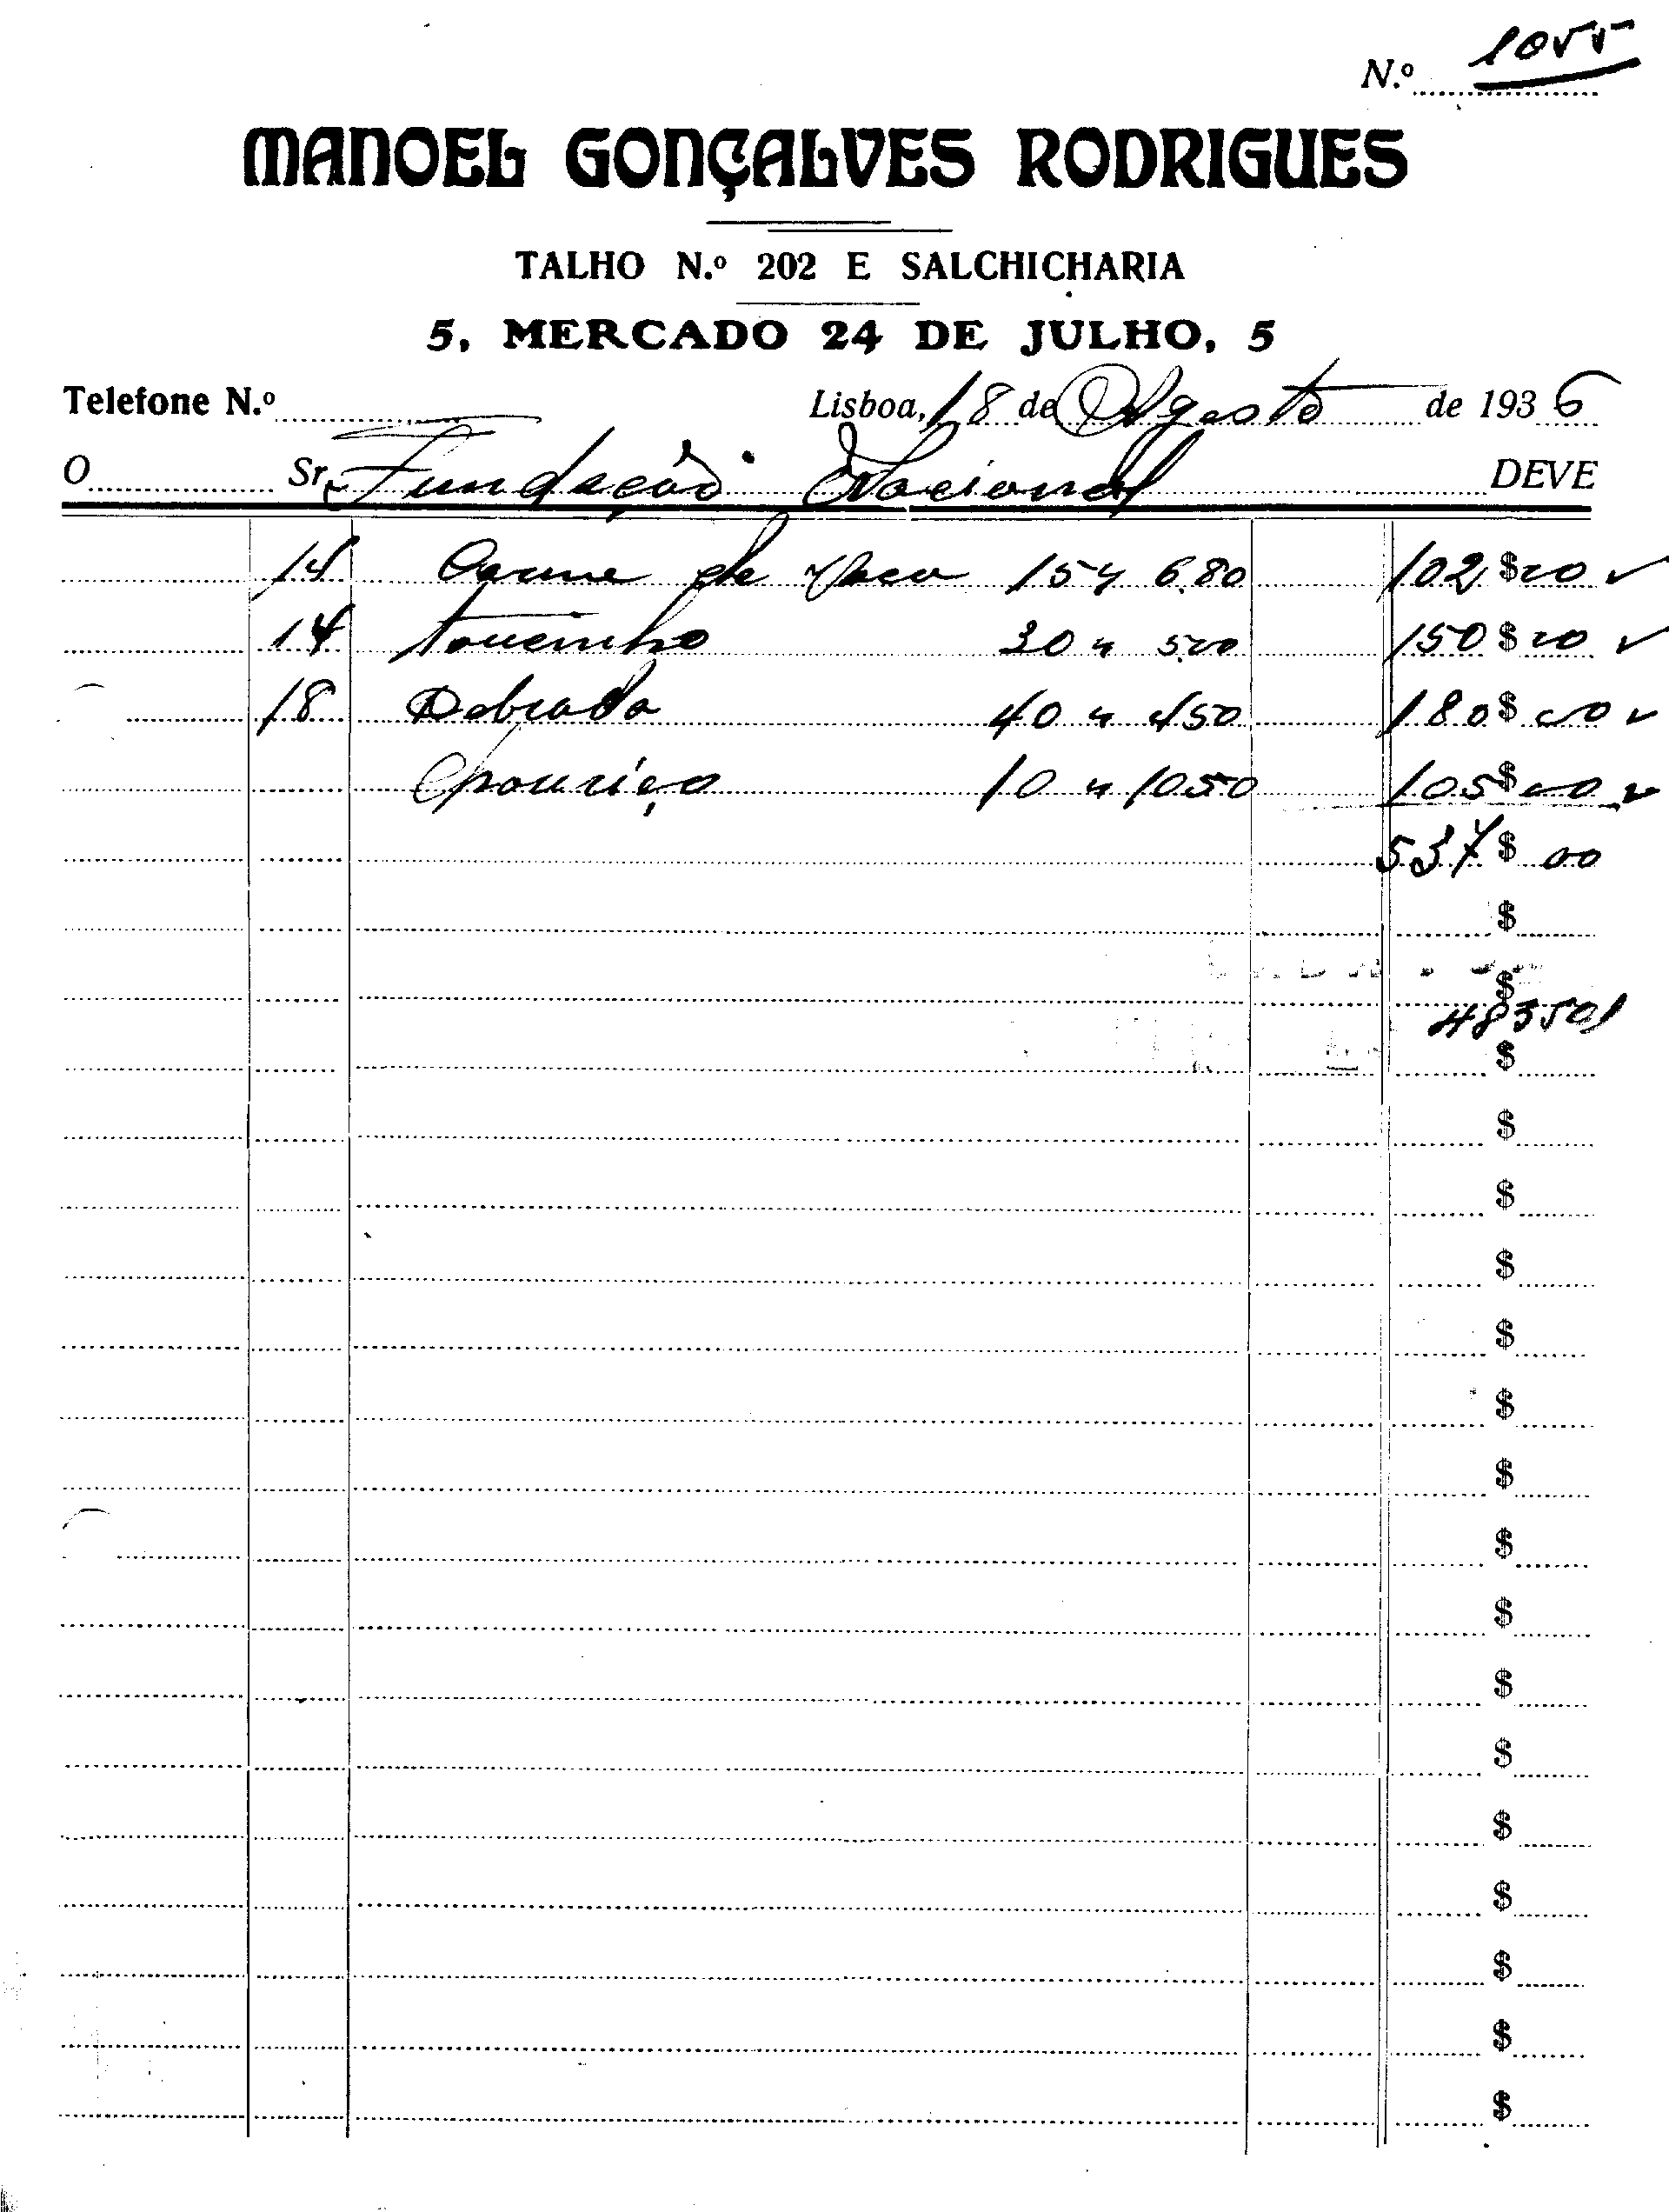 N.º 1055
MANOEL GONÇALVES RODRIGUES
TALHO N.º 202 E SALCHICHARIA
5, MERCADO 24 DE JULHO, 5
Telefone N.º Lisboa, 18 de Agosto de 1936
O Sr. Fundação Nacional DEVE
14 Carne de Vaca 15 " 6.80 102 $ 00
14 Toucinho 30 " 5.00 150 $ 00
18 Dobrada 40 " 450 180 $ 00
Chouriço 10 " 10.50 105 $ 00
537 $ 00
$
$
$
$
$
$
$
$
$
$
$
$
$
$
$
$
$
$